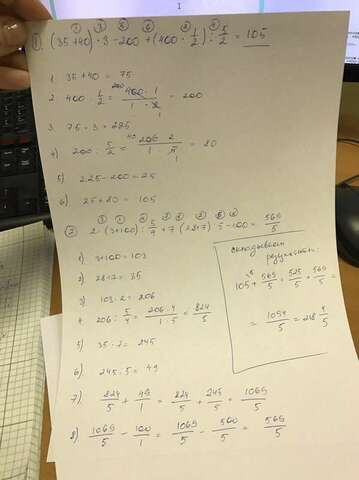 ① (35+40) · 3 - 200 + (400 · 1/2) : 5/2 = 105
1. 35+40 = 75
2. 400 · 1/2 = 400 · 1 / 1 · 2 = 200
3. 75 · 3 = 225
4) 200 : 5/2 = 200 · 2 / 1 · 5 = 80
5) 225-200=25
6) 25+80 = 105
② 2 · (3+100) : 5/4 + 7 · (28+7) : 5 - 100 = 565/5
1) 3+100=103
2) 28+7 = 35
3) 103 · 2 = 206
4. 206 : 5/4 = 206 · 4 / 1 · 5 = 824/5
5) 35 · 7 = 245
6) 245 : 5 = 49
7) 824/5 + 49/1 = 824/5 + 245/5 = 1069/5
8) 1069/5 - 100/1 = 1069/5 - 500/5 = 569/5
складываем
результаты:
105 + 569/5 = 525/5 + 569/5 =
= 1094/5 = 218 4/5